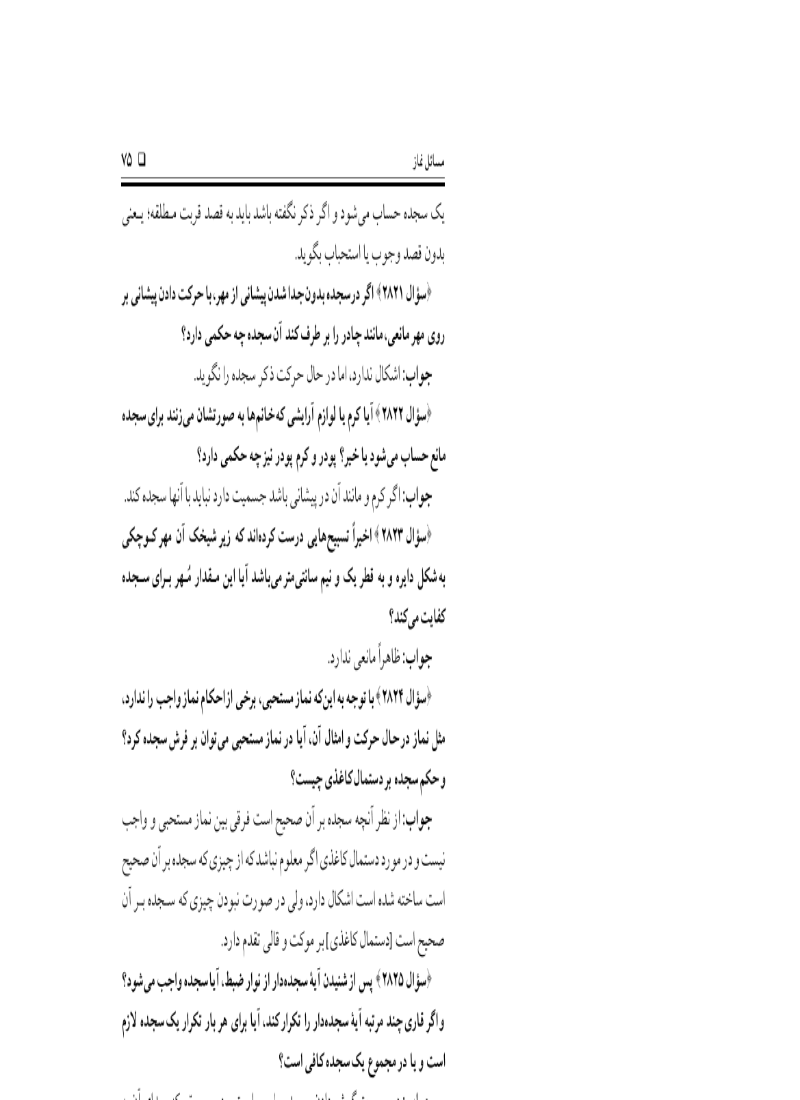 مسائل نماز ❏ ۷۵
یک سجده حساب می‌شود و اگر ذکر نگفته باشد باید به قصد قربت مـطلقه؛ یـعنی
بدون قصد وجوب یا استحباب بگوید.
﴿سؤال ۲۸۲۱﴾ اگر در سجده بدون جدا شدن پیشانی از مهر، با حرکت دادن پیشانی بر
روی مهر مانعی، مانند چادر را بر طرف کند آن سجده چه حکمی دارد؟
جواب: اشکال ندارد، اما در حال حرکت ذکر سجده را نگوید.
﴿سؤال ۲۸۲۲﴾ آیا کرم یا لوازم آرایشی که خانم‌ها به صورتشان می‌زنند برای سجده
مانع حساب می‌شود یا خیر؟ پودر و کرم پودر نیز چه حکمی دارد؟
جواب: اگر کرم و مانند آن در پیشانی باشد جسمیت دارد نباید با آنها سجده کند.
﴿سؤال ۲۸۲۳﴾ اخیراً تسبیح‌هایی درست کرده‌اند که زیر شیخک آن مهر کـوچکی
به شکل دایره و به قطر یک و نیم سانتی‌متر می‌باشد آیا این مـقدار مُـهر بـرای سـجده
کفایت می‌کند؟
جواب: ظاهراً مانعی ندارد.
﴿سؤال ۲۸۲۴﴾ با توجه به این‌که نماز مستحبی، برخی از احکام نماز واجب را ندارد،
مثل نماز در حال حرکت و امثال آن، آیا در نماز مستحبی می‌توان بر فرش سجده کرد؟
و حکم سجده بر دستمال کاغذی چیست؟
جواب: از نظر آنچه سجده بر آن صحیح است فرقی بین نماز مستحبی و واجب
نیست و در مورد دستمال کاغذی اگر معلوم نباشد که از چیزی که سجده بر آن صحیح
است ساخته شده است اشکال دارد، ولی در صورت نبودن چیزی که سـجده بـر آن
صحیح است [دستمال کاغذی] بر موکت و قالی تقدم دارد.
﴿سؤال ۲۸۲۵﴾ پس از شنیدن آیهٔ سجده‌دار از نوار ضبط، آیا سجده واجب می‌شود؟
و اگر قاری چند مرتبه آیهٔ سجده‌دار را تکرار کند، آیا برای هر بار تکرار یک سجده لازم
است و یا در مجموع یک سجده کافی است؟